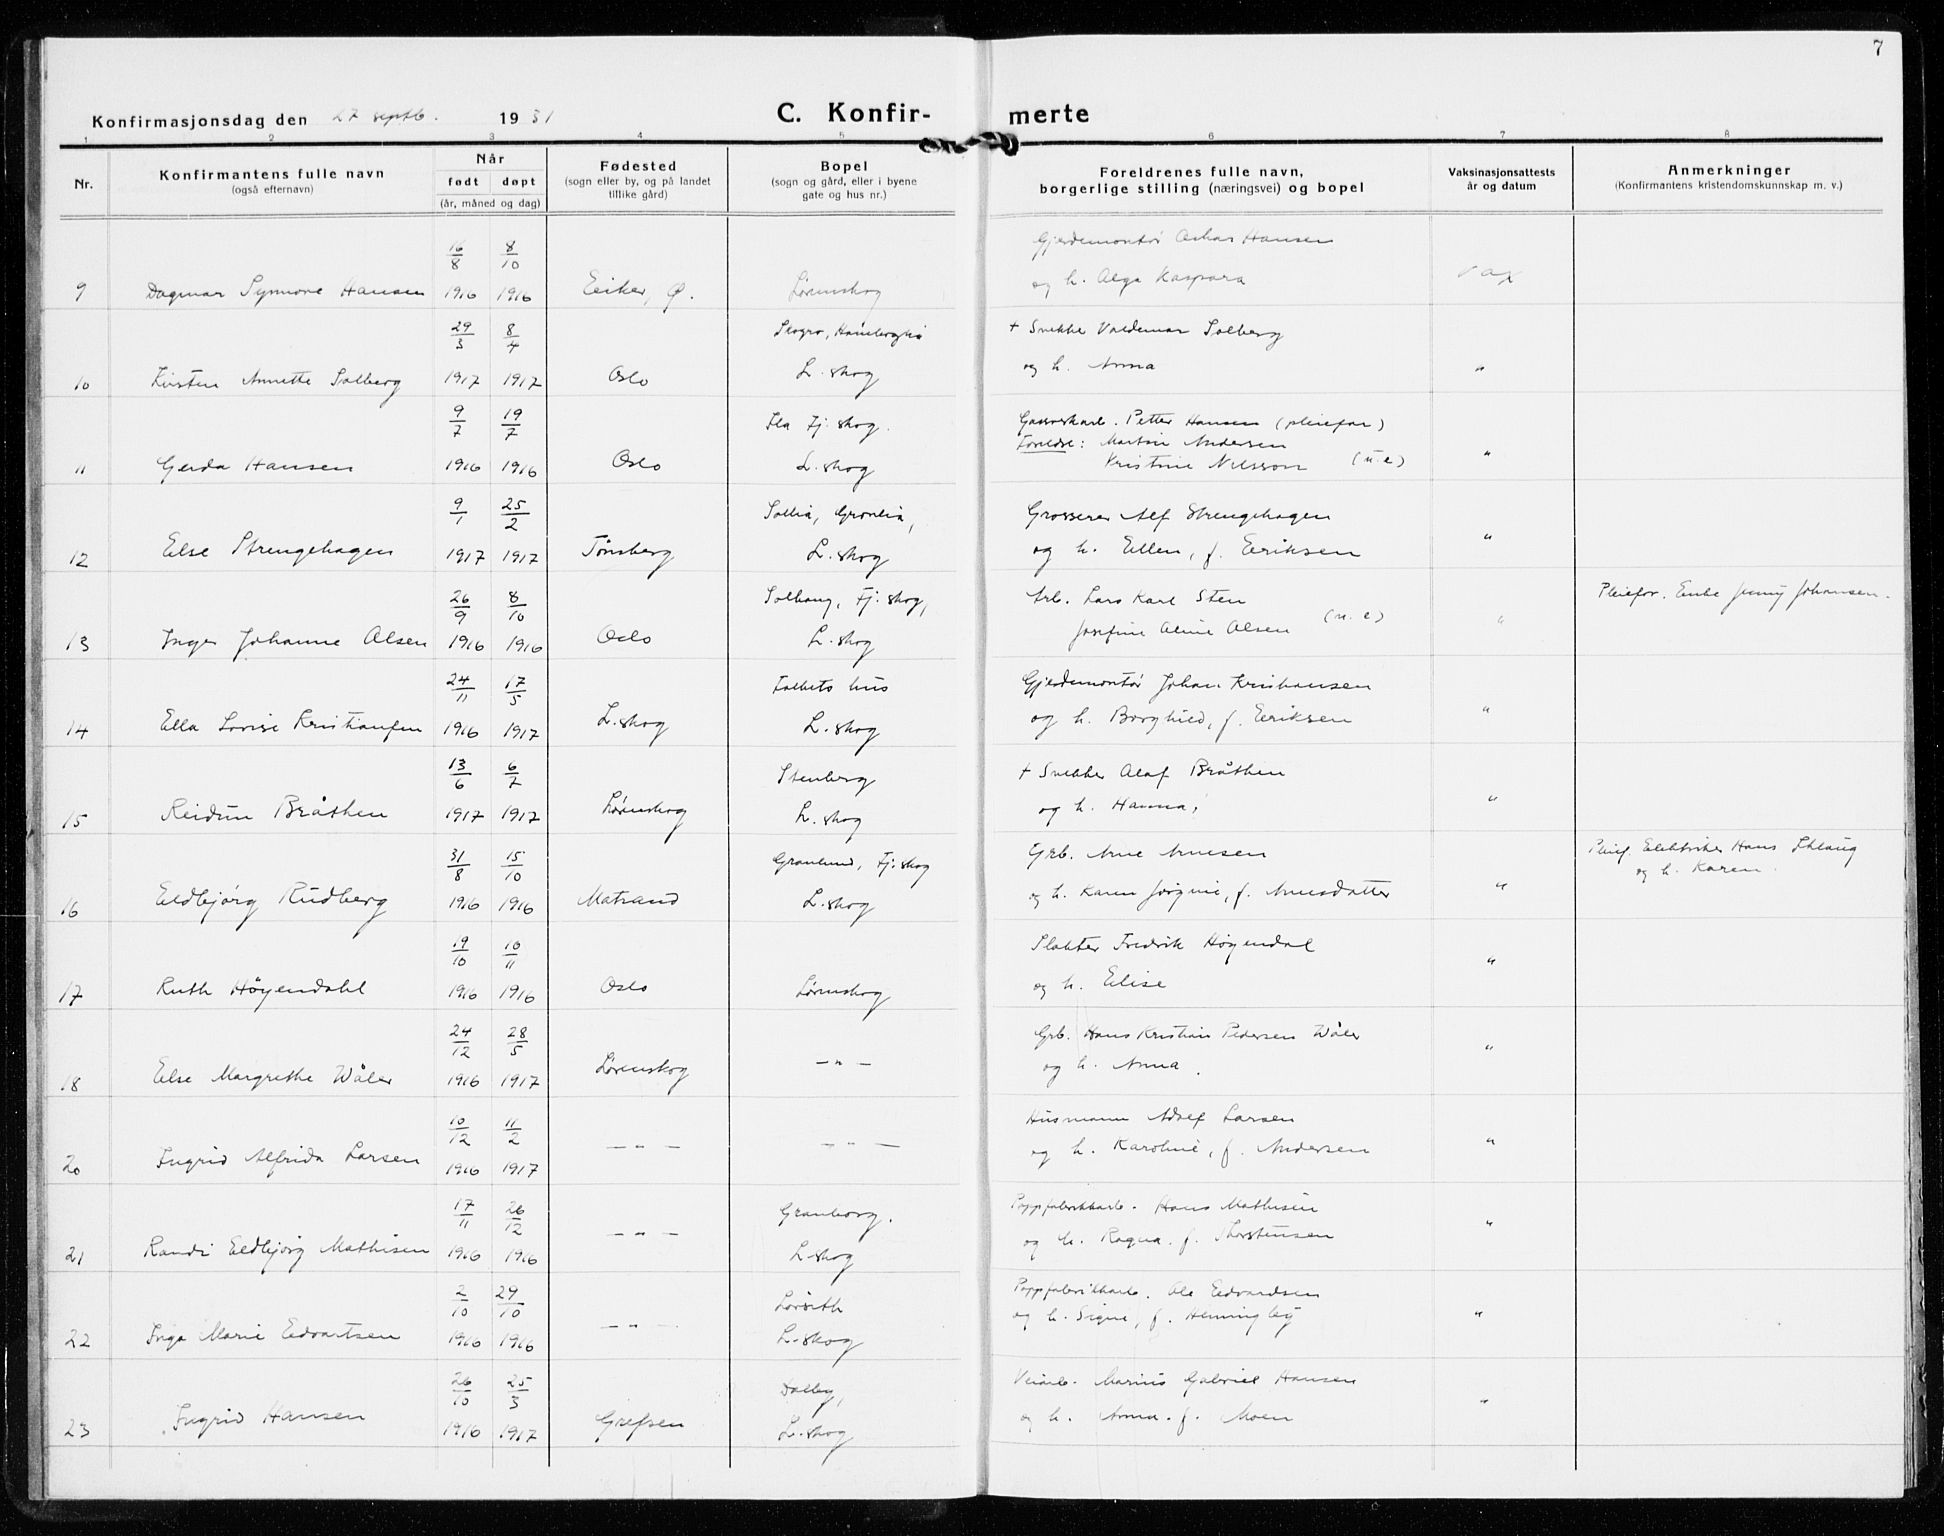 7
Konfirmasjonsdag den 27 septb. 1931
C. Konfir- merte
1 2 3 4 5 6 7 8
Nr. Konfirmantens fulle navn (også efternavn) Når født døpt (år, måned og dag) Fødested (sogn eller by, og på landet tillike gård) Bopel (sogn og gård, eller i byene gate og hus nr.) Foreldrenes fulle navn, borgerlige stilling (næringsvei) og bopel Vaksinasjonsattests år og datum Anmerkninger (Konfirmantens kristendomskunnskap m. v.)
16/8 8/10 Gjerdemontør Oskar Hansen
9 Dagmar Synnøve Hansen 1916 1916 Eiker, Ø. Lørenskog og h. Alga Kaspara vax
29/3 8/4 + Snekke Valdemar Solberg
10 Kirsten Annette Solberg 1917 1917 Oslo L.skog og h. Anna "
9/7 19/7 Fj.skog. Petter Hansen (pleiefar)
Foreldre: Martin Andersen
11 Gerda Hansen 1916 1916 Oslo L.skog Kristine Nilsson (u.e) "
9/1 25/2 Sollia, Grønlia, Grosserer Alf Strengehagen
12 Else Strengehagen 1917 1917 Tønsberg L.skog og h. Ellen, f. Eriksen "
26/9 8/10 Solhaug, Fj.skog, Arb. Lars Karl Sten Pleiefor. Enke Jenny Johansen.
13 Inger Johanne Olsen 1916 1916 Oslo L.skog Josefine Oline Olsen (u.e) "
24/11 17/5 Folkets hus Gjerdemontør Johan Kristiansen
14 Ella Lovise Kristiansen 1916 1917 L.skog L.skog og h. Borghild, f. Eriksen "
13/6 6/7 Stenberg + Snekker Olaf Bråthen
15 Reidun Bråthen 1917 1917 Lørenskog L.skog og h. Hanna, "
31/8 15/10 Granlund, Fj.skog Grb. Arne Arnesen Pleief. Elektriker Hans
16 Eldbjørg Rudberg 1916 1916 Matrand L.skog og h. Karen Jørgine, f. Arnesdatter " og h. Karen.
19/10 10/11 Slakter Fredrik Høyendal
17 Ruth Höyendahl 1916 1916 Oslo Lørenskog og h. Elise "
24/12 28/5 Grb. Hans Kristian Pedersen Wåler
18 Else Margrethe Wåler 1916 1917 Lørenskog — " — og h. Anna. "
10/12 11/2 Husmann Adolf Larsen
20 Ingrid Alfrida Larsen 1916 1917 — " — — " — og h. Karoline, f. Andersen "
17/11 26/12 Granborg. Pappfabrikkarb. Hans Mathisen
21 Randi Eldbjørg Mathisen 1916 1916 — " — L.skog og h. Ragna. f. Thorstensen "
2/10 29/10 Pappfabrikkarb. Ole Edvardsen
22 Inga Marie Edvartsen 1916 1916 — " — L.skog og h. Signe, f. "
26/10 25/3 Dalby, Veiarb. Marius Gabriel Hansen
23 Ingrid Hansen 1916 1917 Grefsen L.skog og h. Anna. f. Moen "